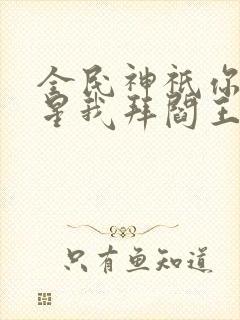 全民神祇你
星我拜阎王
只有鱼知道